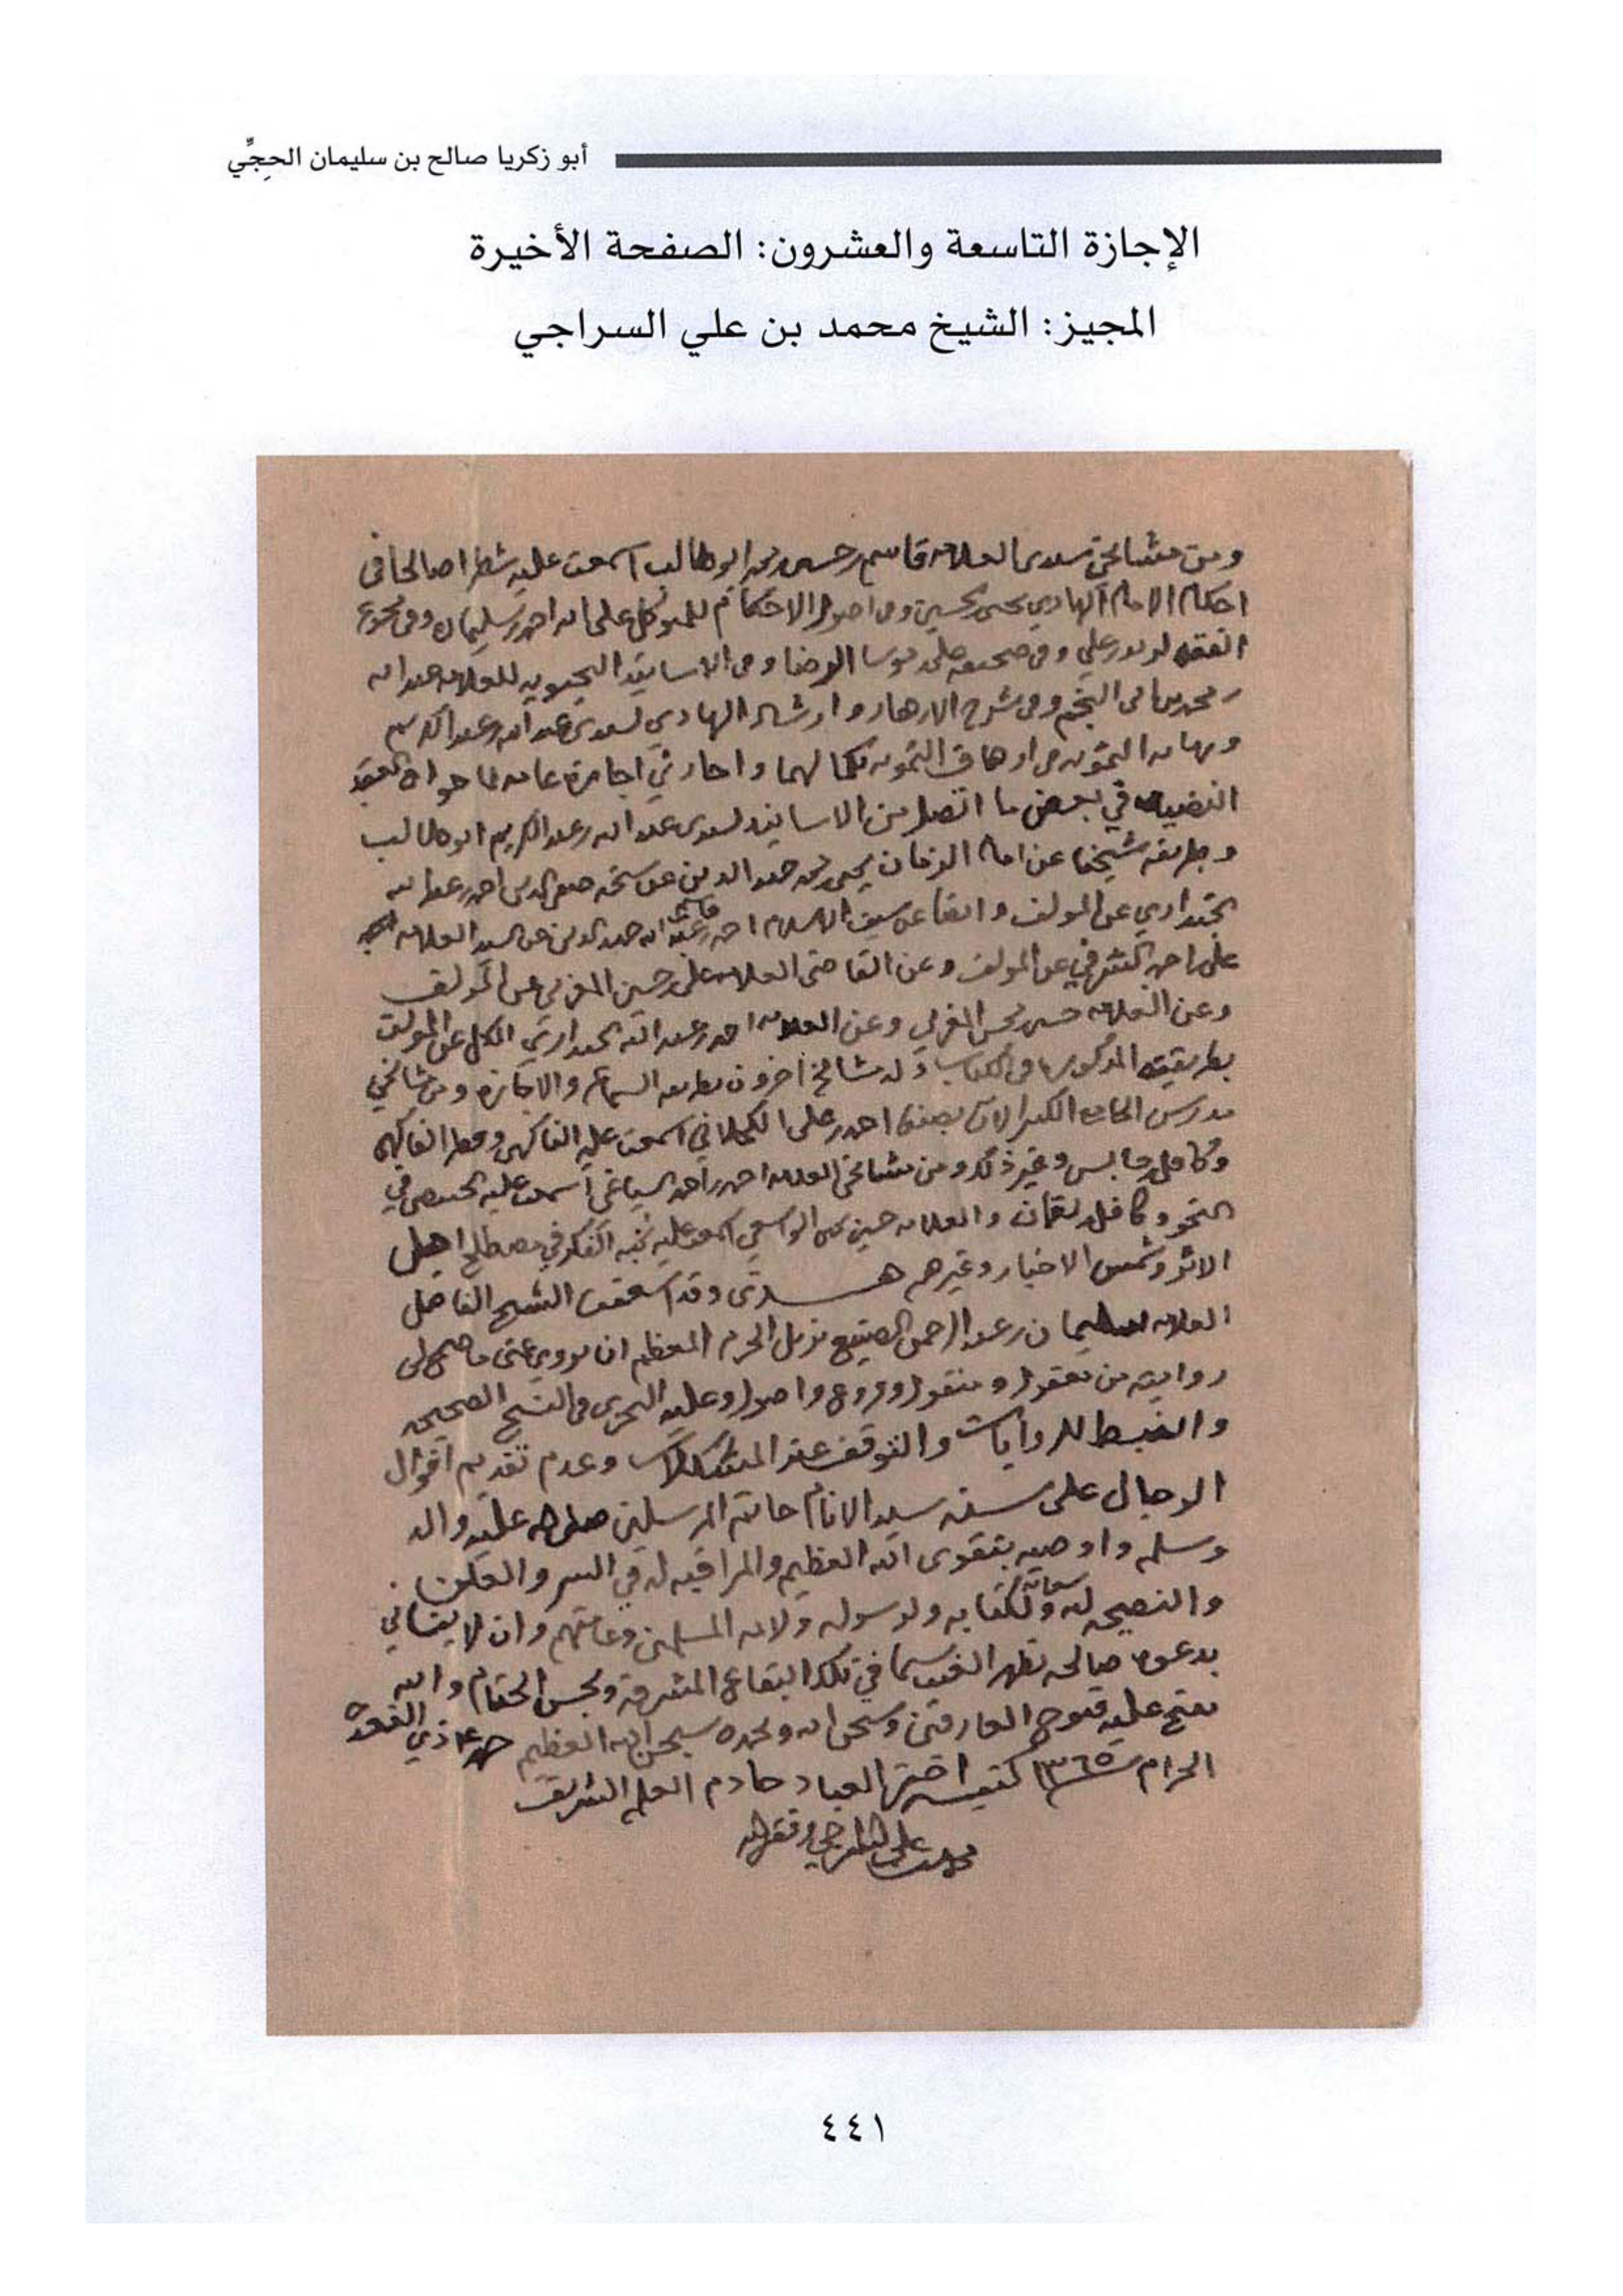 أبو زكريا صالح بن سليمان الحِجِّي
الإجازة التاسعة والعشرون: الصفحة الأخيرة
المجيز: الشيخ محمد بن علي السراجي
ومن مشائخي سيدي العلامه قاسم بن حسين بن محمد ابو طالب اسمعت عليه شطرا صالحا في
احكام الامام الهادي يحيى بن الحسين وفي اصول الاحكام للمتوكل على الله احمد بن سليمان وفي مجموع
الفقه لزيد بن علي وفي صحيفه علي بن موسا الرضا وفي الاسانيد اليحيويه للعلامه عبد الله
بن محمد بن ابي النجم وفي شرح الازهار وارشاد الهادي لسيدي عبد الله بن عبد الكريم
واجازني اجازة عامه لما حواه العقد
النضيد في بعض ما اتصل من الاسانيد لسيدي عبد الله بن عبد الكريم ابو طالب
وطريقه شيخنا عن امام الزمان يحيى بن محمد حميد الدين عن شيخه صفي الدين احمد بن عبد الله
الجنداري عن المولف وايضا عن سيف الاسلام احمد بن قاسم بن عبد الله حميد الدين عن السيد العلامه
علي بن احمد الشرفي عن المولف وعن القاضي العلامه علي بن حسين المغربي عن المولف
وعن العلامه حسين بن محسن المغربي وعن العلامه احمد بن عبد الله الجنداري الكل عن المولف
بطريقته المذكوره في الكتاب وله مشائخ اخرون بطريقه السماع والاجازه ومن مشائخي
مدرس الجامع الكبير الان بصنعا احمد بن علي الكحلاني اسمعت عليه الفاكهي وقطر الفاكهي
وكافل وجالس وغير ذلك ومن مشائخي العلامه احمد بن احمد السياغي اسمعت عليه الخبيصي في
النحو وكافل لقمان والعلامه حسين بن يحيى الواسعي اسمعت عليه نخبه الفكر في مصطلح اهل
الاثر وشمس الاخبار وغيرهم هــذى وقد اسعفت الشيخ الفاضل
العلامه سليمان بن عبد الرحمن الصنيع نزيل الحرم المعظم ان يروي عني ما صح لي
روايته من معقول ومنقول وفروع واصول وعليه التحري في النسخ الصحيحه
والضبط للروايات والتوقف عند المشكلات وعدم تقديم اقوال
الرجال على سنه سيد الانام خاتم المرسلين صلى الله عليه واله
وسلم واوصيه بتقوى الله العظيم والمراقبه له في السر والعلن
والنصيحه لله سبحانه ولكتابه ولرسوله ولائمه المسلمين وعامتهم وان لا ينساني
بدعوه صالحه بظهر الغيب سيما في تلك البقاع المشرفة وبحسن الختام والله
يفتح عليه فتوح العارفين وسبحان الله وبحمده سبحان الله العظيم ذي القعدة
الحرام سنه ١٣٦٥ كتبه احقر العباد خادم العلم الشريف
محمد بن علي السراجي وفقه الله
٤٤١